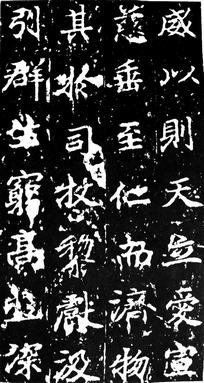 以則天立愛宣
慈垂至化而濟物
其非司牧黎獻汲
引群生窮高深